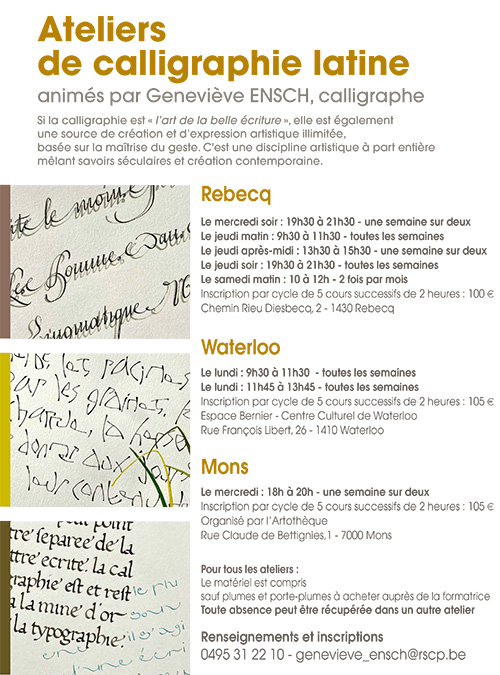 Ateliers
de calligraphie latine
animés par Geneviève ENSCH, calligraphe
Si la calligraphie est « l'art de la belle écriture », elle est également
une source de création et d'expression artistique illimitée,
basée sur la maîtrise du geste. C'est une discipline artistique à part entière
mêlant savoirs séculaires et création contemporaine.
Rebecq
Le mercredi soir : 19h30 à 21h30 - une semaine sur deux
Le jeudi matin : 9h30 à 11h30 - toutes les semaines
Le jeudi après-midi : 13h30 à 15h30 - une semaine sur deux
Le jeudi soir : 19h30 à 21h30 - toutes les semaines
Le samedi matin : 10 à 12h - 2 fois par mois
Inscription par cycle de 5 cours successifs de 2 heures : 100 €
Chemin Rieu Diesbecq, 2 - 1430 Rebecq
Waterloo
Le lundi : 9h30 à 11h30 - toutes les semaines
Le lundi : 11h45 à 13h45 - toutes les semaines
Inscription par cycle de 5 cours successifs de 2 heures : 105 €
Espace Bernier - Centre Culturel de Waterloo
Rue François Libert, 26 - 1410 Waterloo
Mons
Le mercredi : 18h à 20h - une semaine sur deux
Inscription par cycle de 5 cours successifs de 2 heures : 105 €
Organisé par l'Artothèque
Rue Claude de Bettignies,1 - 7000 Mons
Pour tous les ateliers :
Le matériel est compris
sauf plumes et porte-plumes à acheter auprès de la formatrice
Toute absence peut être récupérée dans un autre atelier
Renseignements et inscriptions
0495 31 22 10 - genevieve_ensch@rscp.be
te le moin
Les homme
, les racines
ar les graines, l
donner aux
leur conten
peut point
tre separee de la
ttre ecrite. la cal
raphie est et rest
a la mine d'or
la typographie.